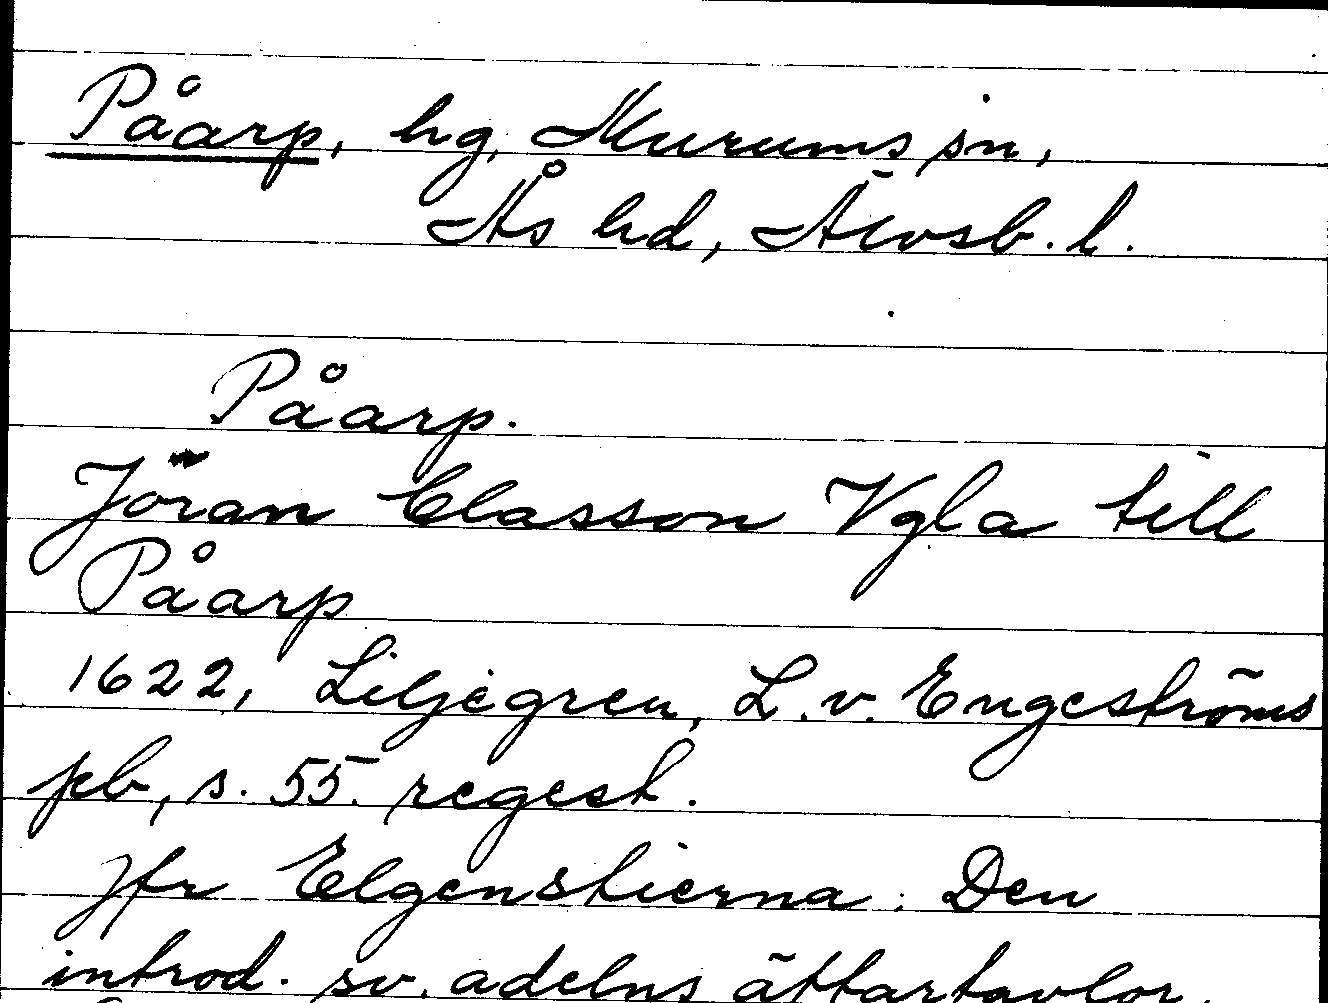 Påarp, hg, Murums sn,
Ås hd, Älvsb. l.
Påarp.
Jöran Classon Vgla till
Påarp
1622, Liljegren, L. v. Engeströms
pb, s. 55. regest.
Jfr Elgenstierna: Den
introd. sv. adelns ättartavlor.